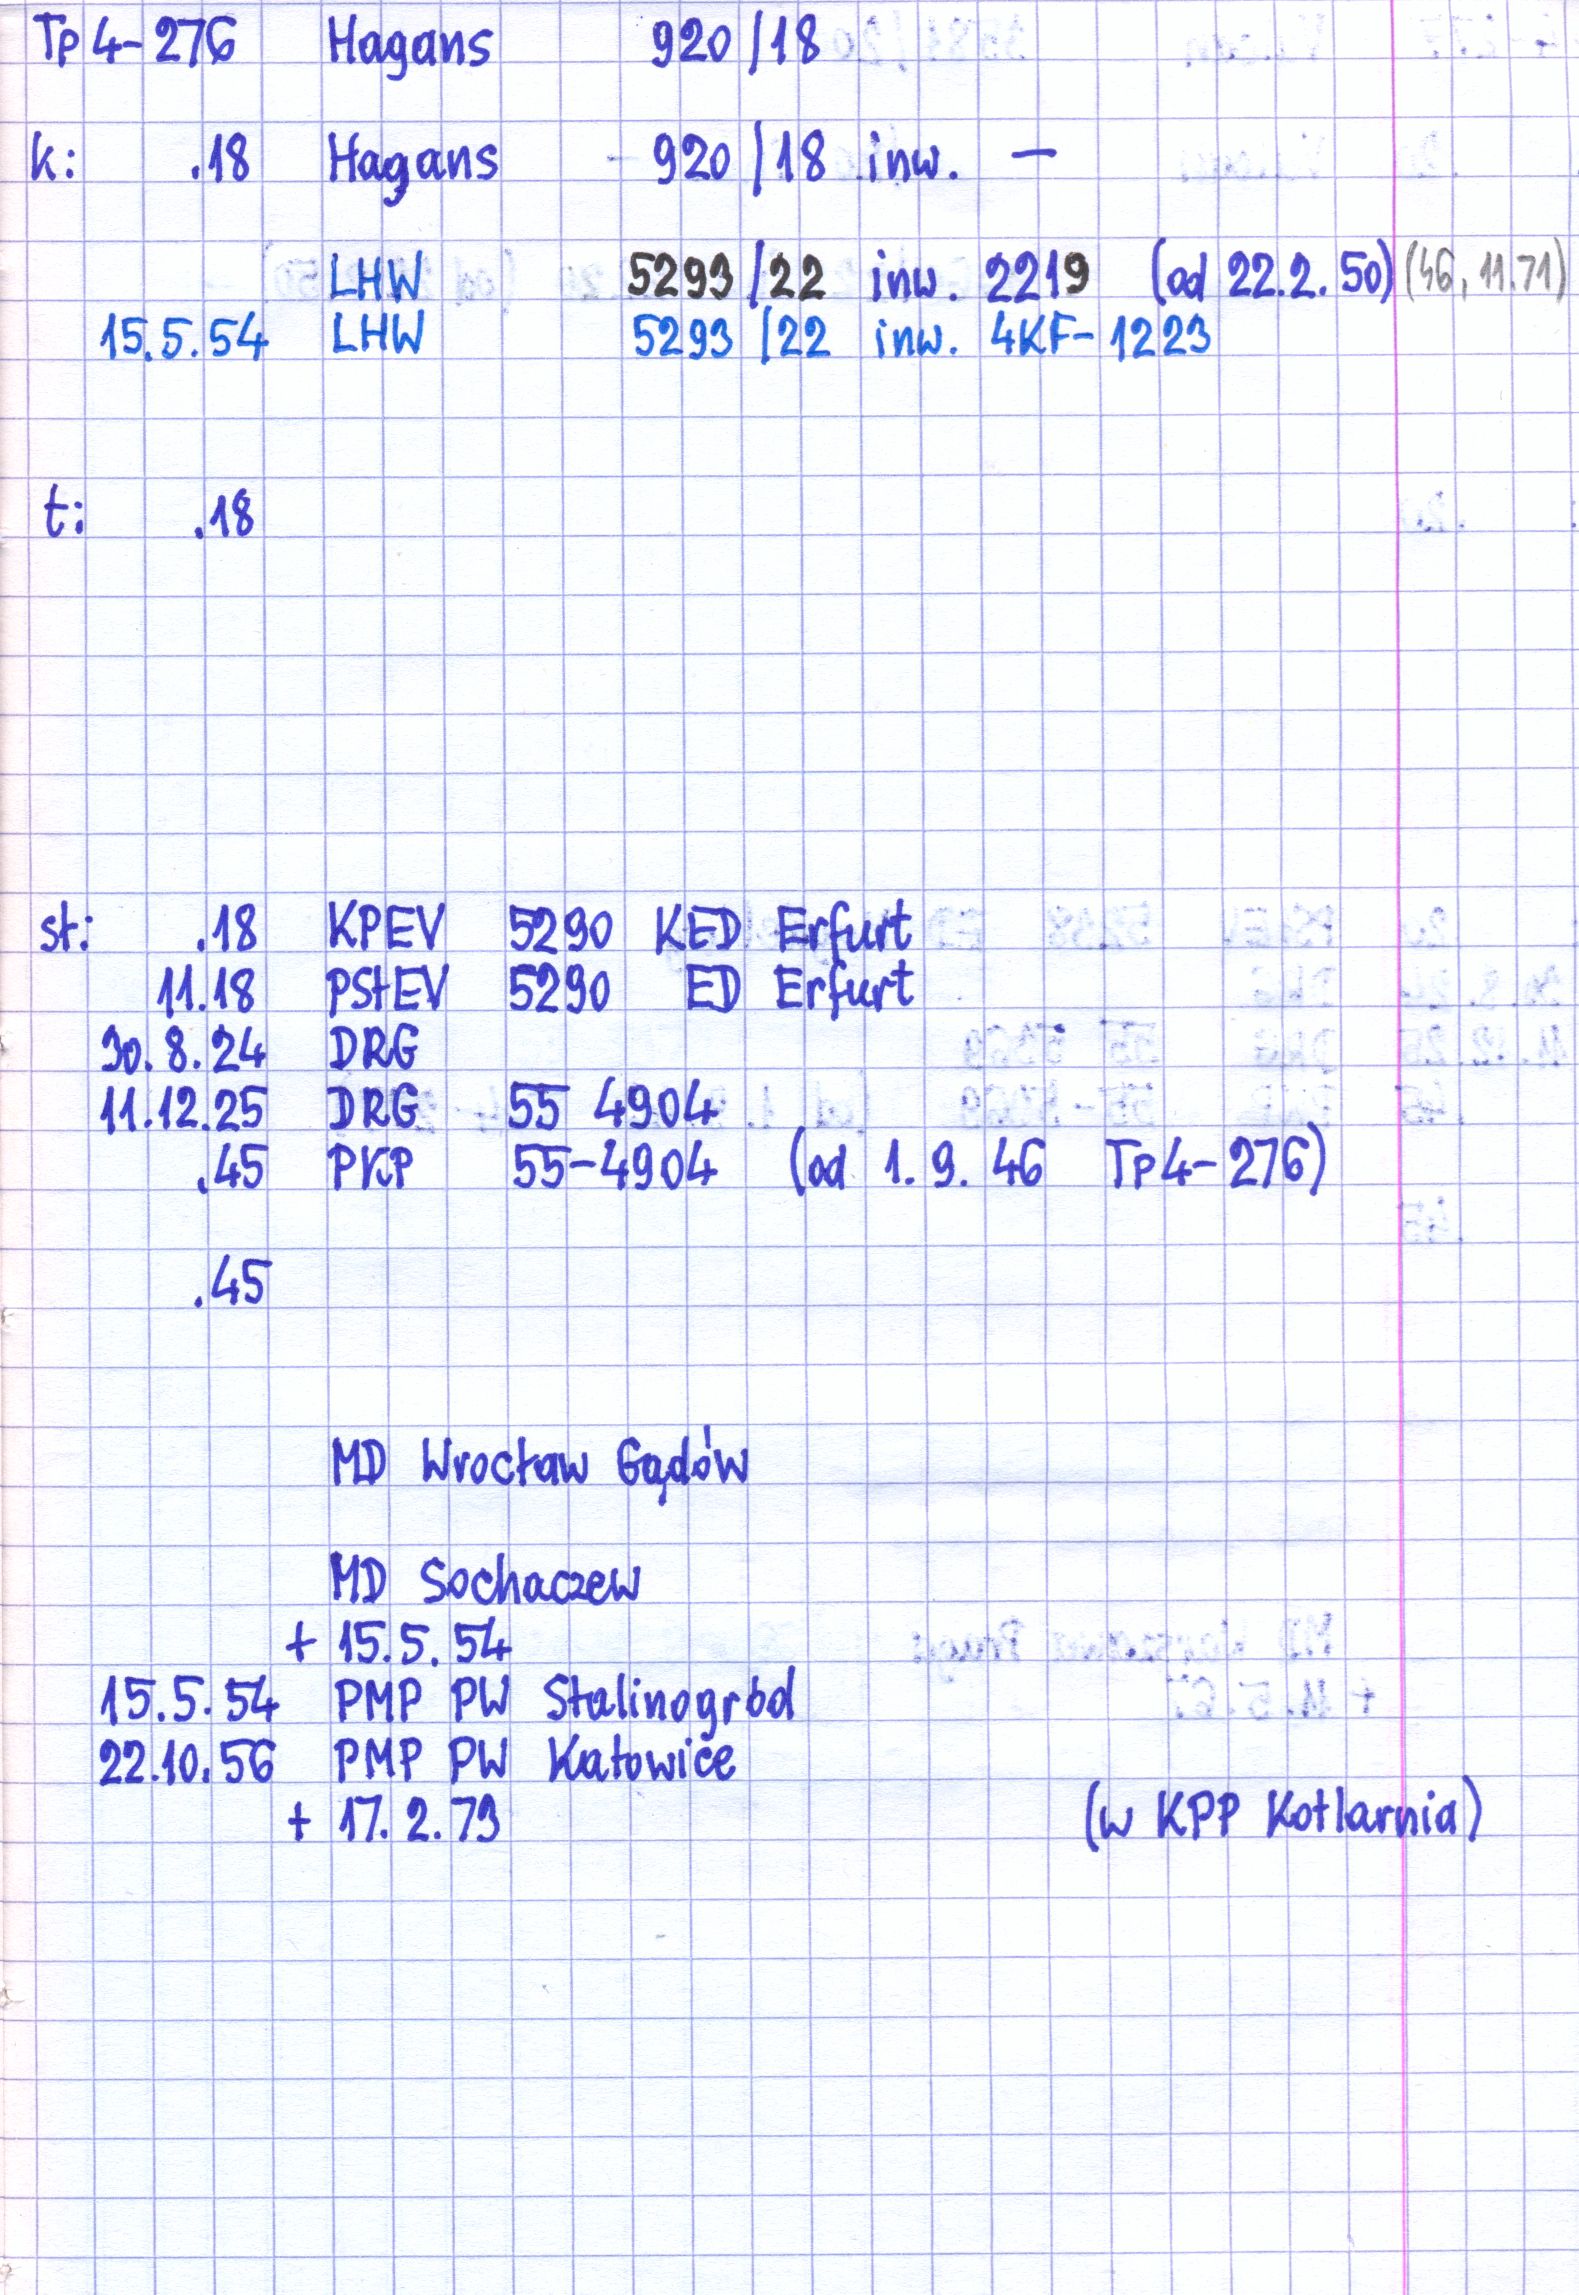 Tp4-276 Hagans 920/18
k: .18 Hagans 920/18 inw. —
LHW 5293/22 inw. 2219 (od 22.2.50) (46, 11.71)
15.5.54 LHW 5293/22 inw. 4KF-1223
t: .18
st: .18 KPEV 5290 KED Erfurt
11.18 PStEV 5290 ED Erfurt
30.8.24 DRG
11.12.25 DRG 55 4904
.45 PKP 55-4904 (od 1.9.46 Tp4-276)
.45
MD Wrocław Gądów
MD Sochaczew
+ 15.5.54
15.5.54 PMP PW Stalinogród
22.10.56 PMP PW Katowice
+ 17.2.73 (w KPP Kotlarnia)